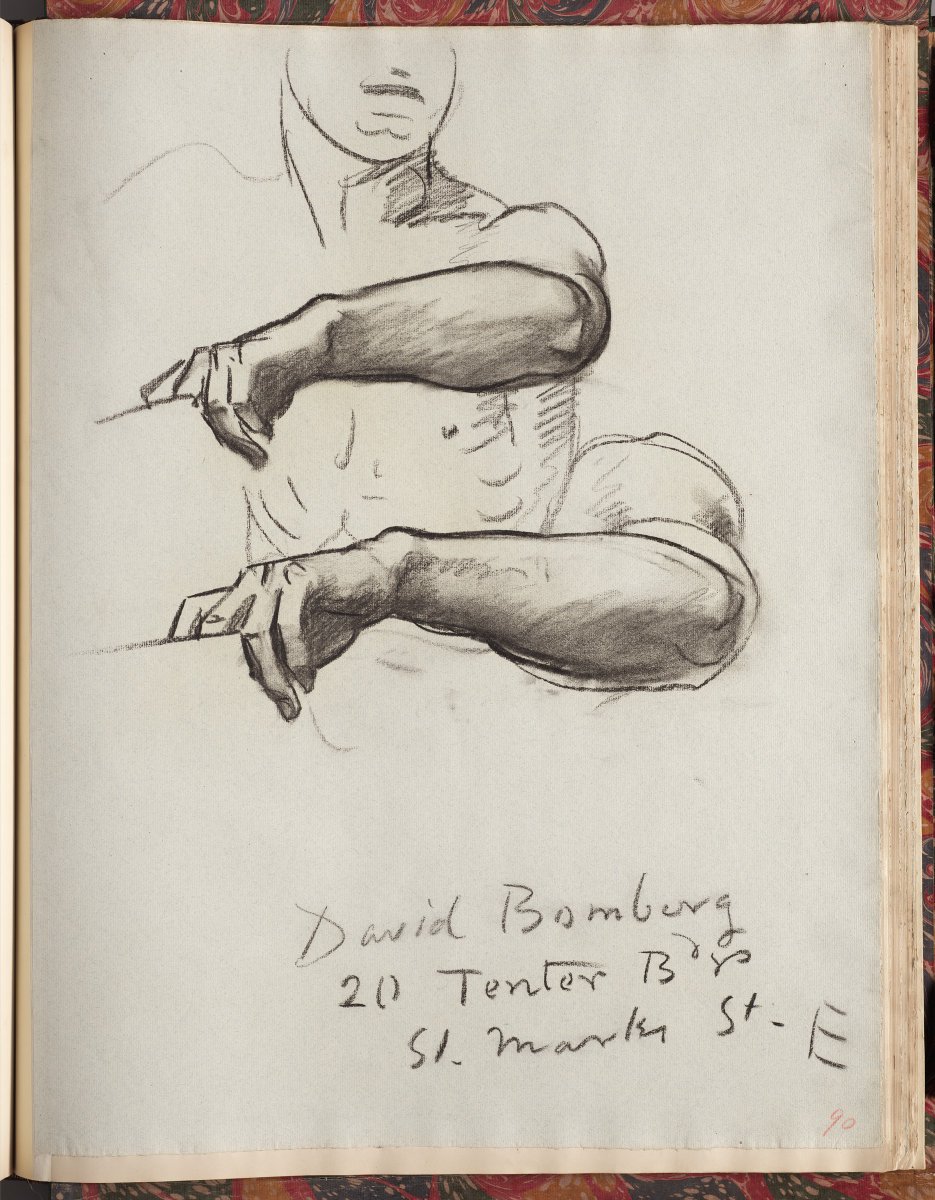 David Bomberg
20 Tenter Bdgs
St. Marks St. E
90